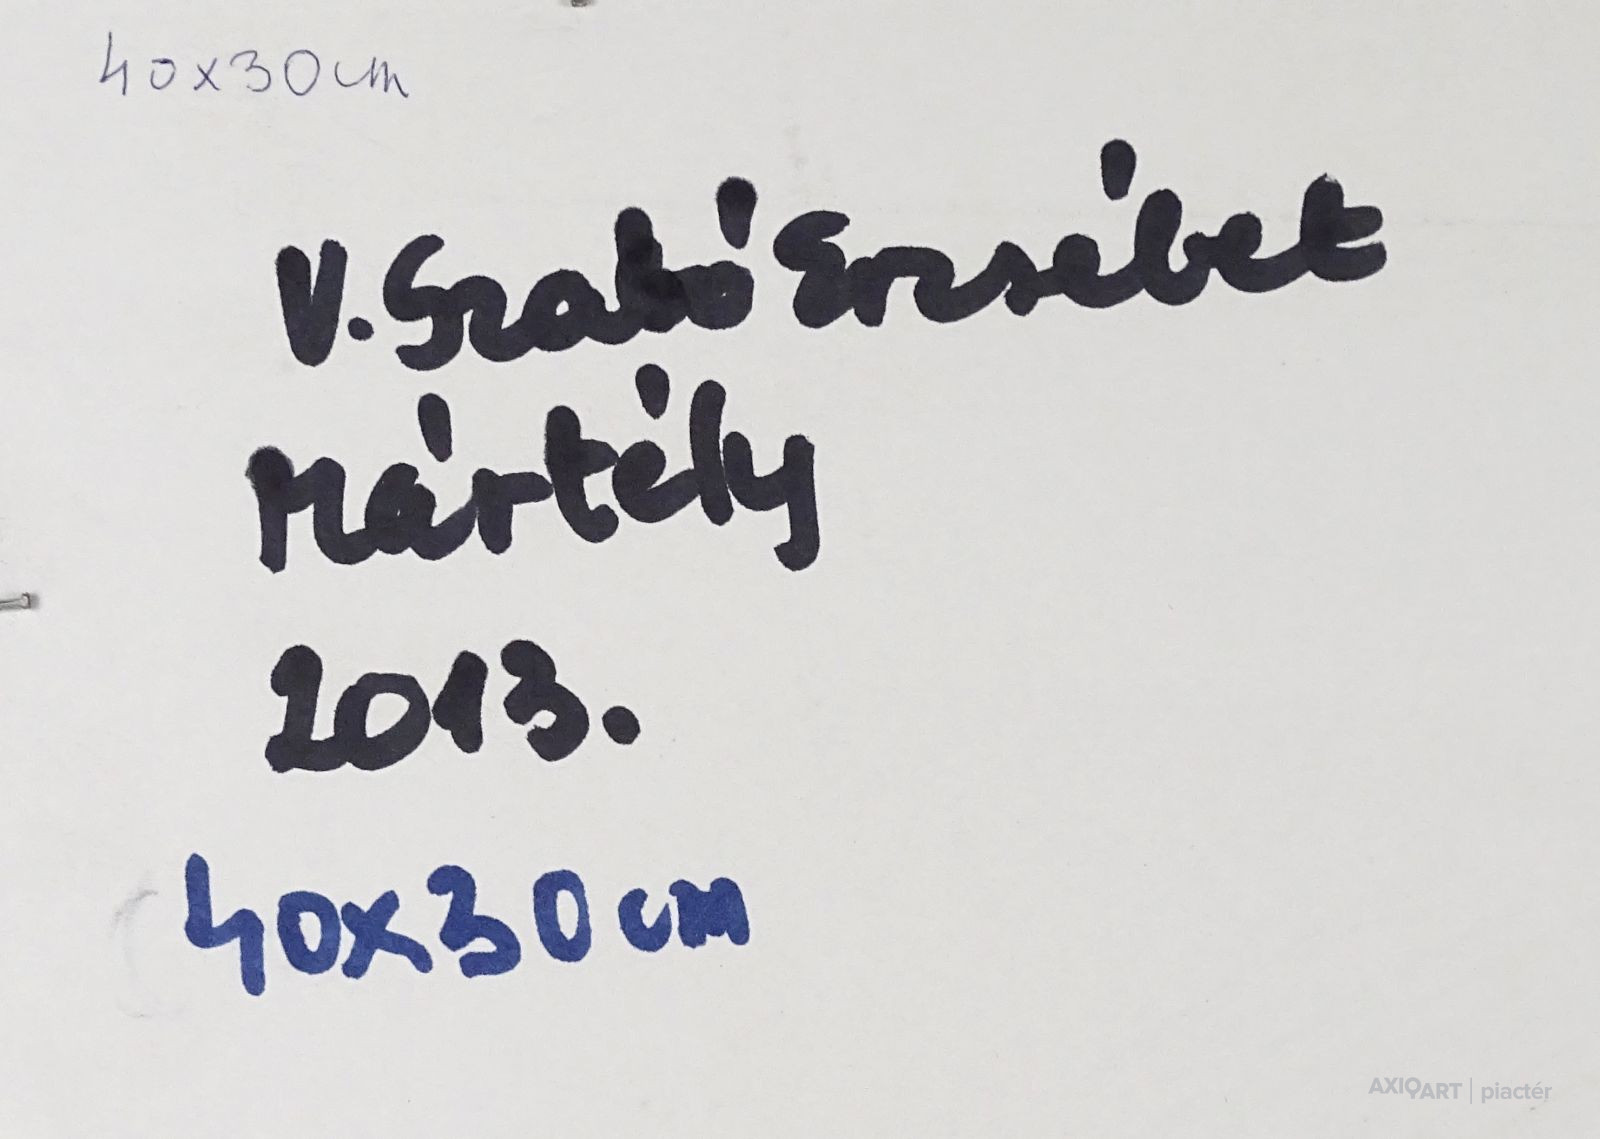 40x30cm
V. Szabó Erzsébet
Mártély
2013.
40x30cm
AXIOART | piactér